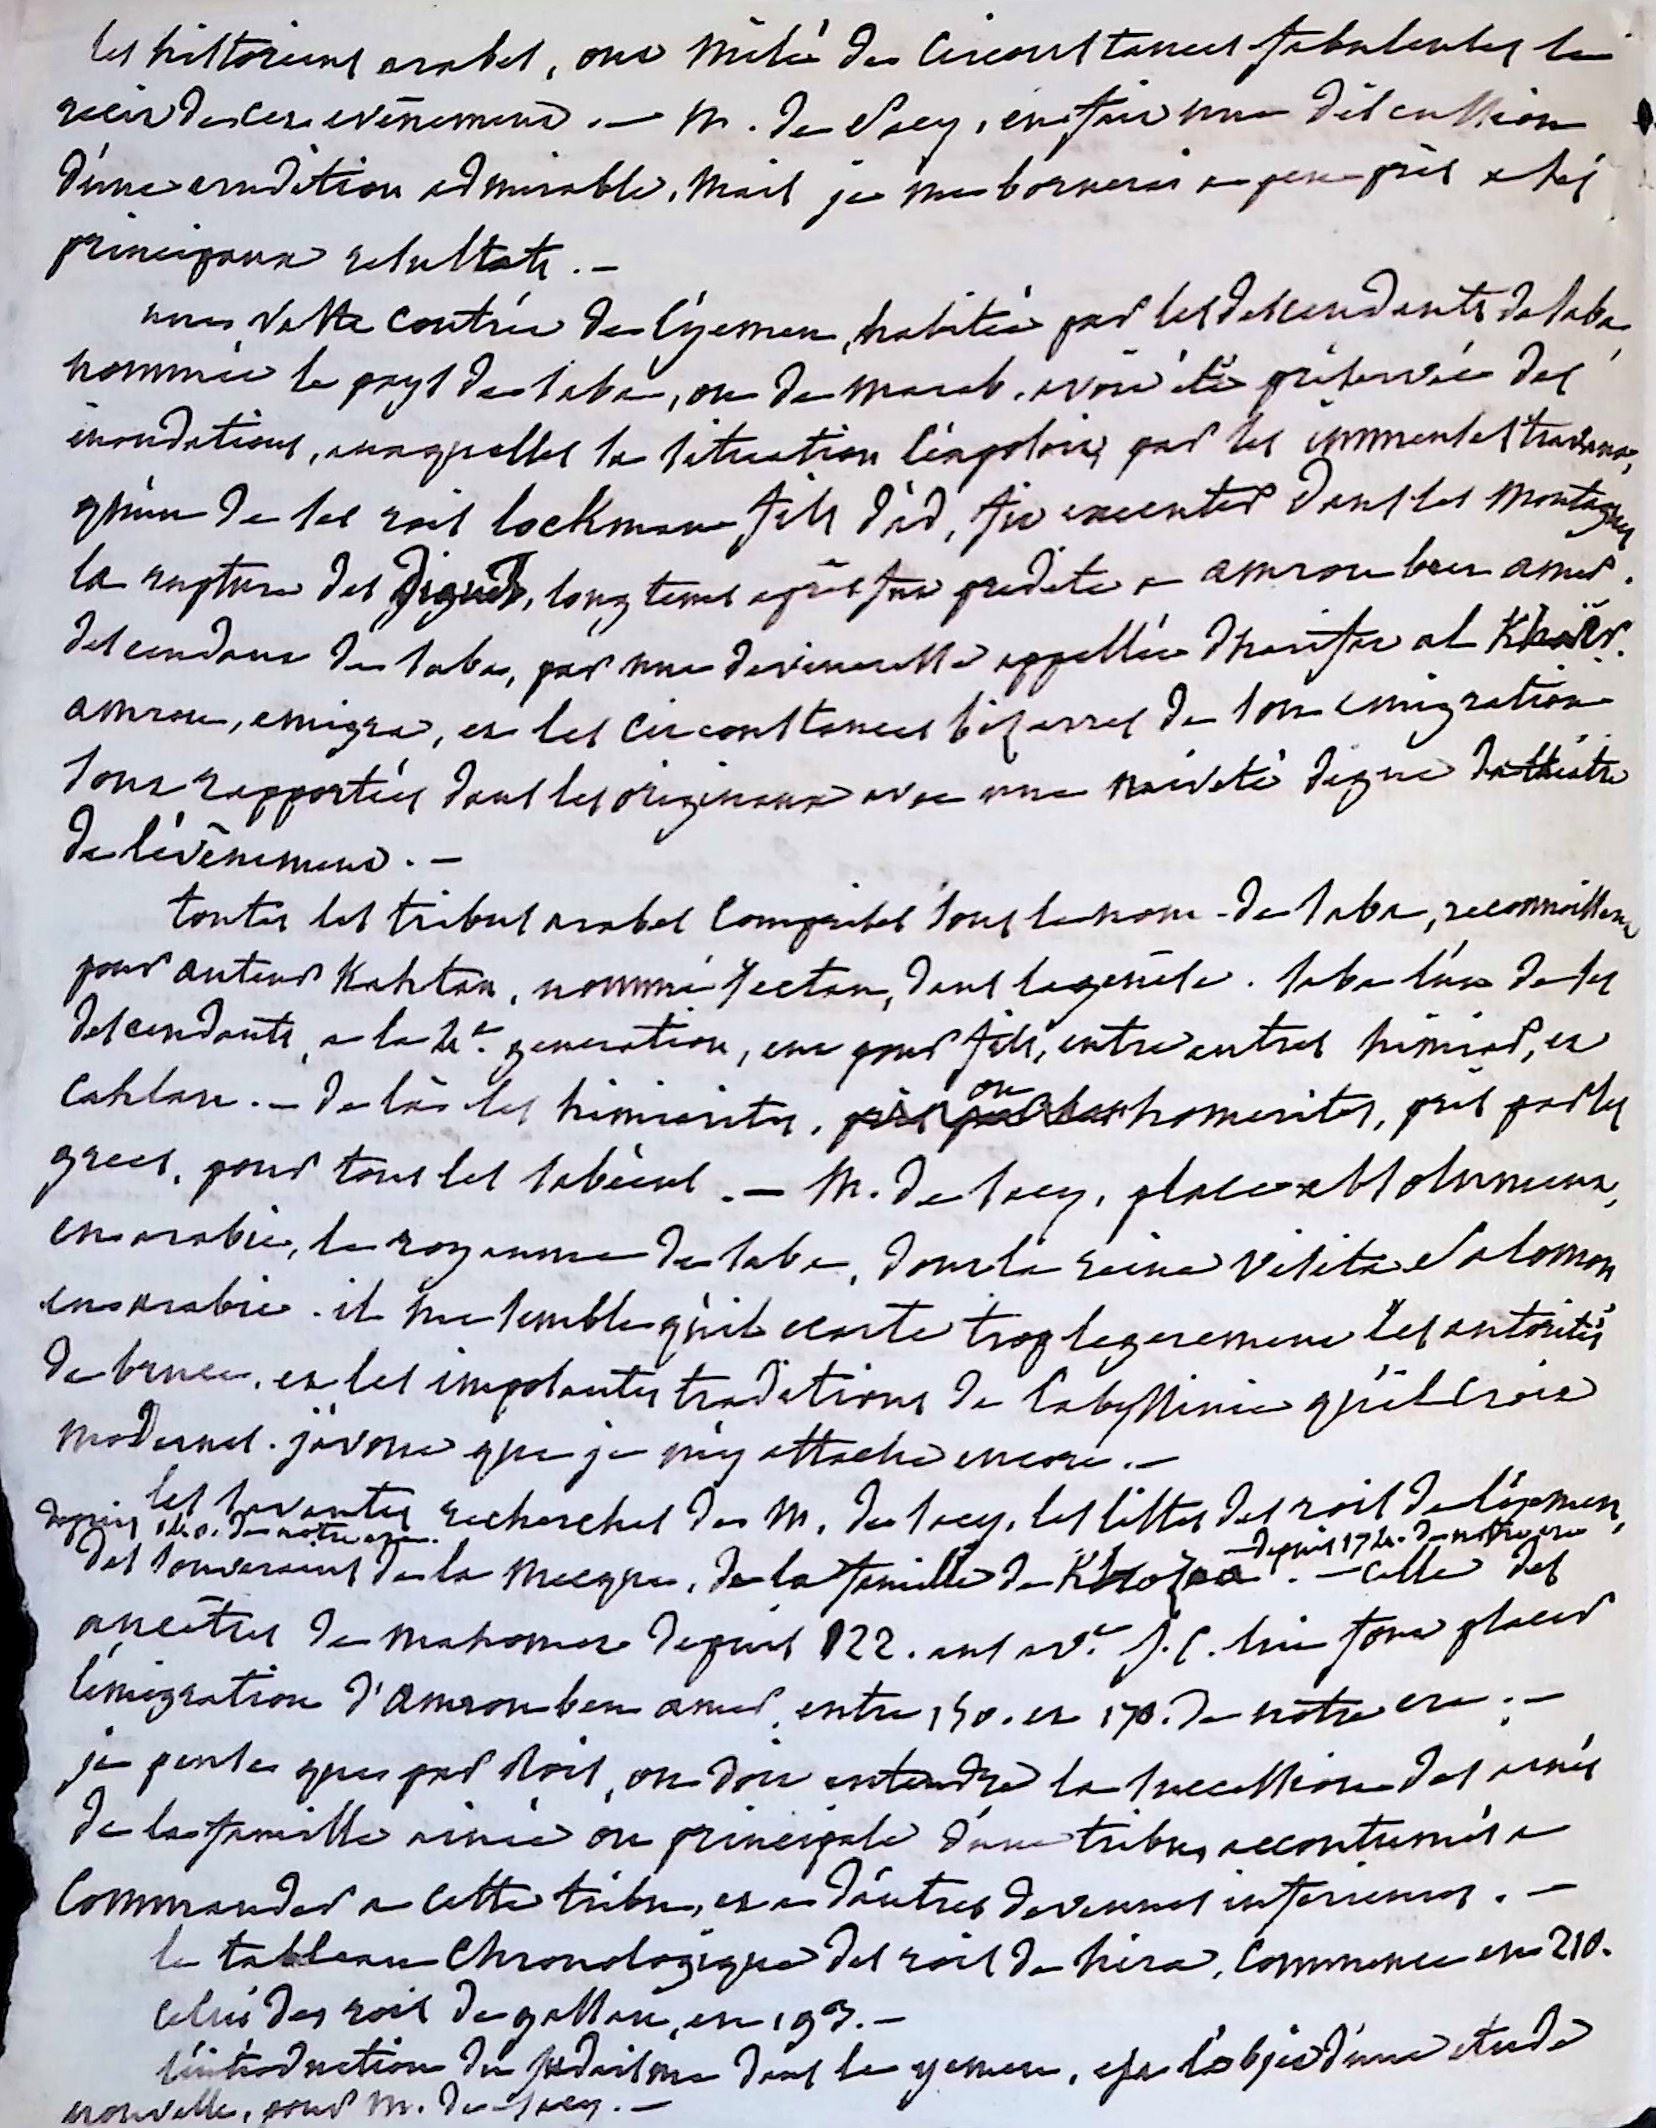 les historiens arabes, ont mêlé de circonstances fabuleuses le
récit de ces evénemens. — M. de Sacy, en fait une discussion
d'une erudition admirable. mais je me bornerai a peu près a ses
principaux resultats. —
une vaste contrée de l'yemen, habitée par les descendants de saba,
nommée le pays de saba, ou de mareb. avoit été préservée des
inondations, auxquelles sa situation l'expose, par les immenses travaux,
qu'un de ses rois lockman fils d'ad, fit executer dans les montagnes
la rupture des digues, long tems après fut predite a amrou ben amer.
descendant de saba, par une devineresse appellée dharifa al Khaïr.
amrou, emigra, et les circonstances bizarres de son emigration
sont rapportées dans les originaux avec une naiveté digne du théatre
de l'évènement. —
toutes les tribus arabes comprises sous le nom de saba, reconnoissent
pour auteur Kahtan, nommé Jectan, dans la genèse. saba l'un de ses
descendants, a la 4e. generation, eut pour fils, entre autres himiar, et
cahlan. — de là les himiarites, ou homerites, pris par les
grecs, pour tous les sabéens. — M. de Sacy, place absolument,
en arabie, le royaume de saba, dont la reine visita Salomon
en arabie. il me semble qu'il ecarte trop legerement les autorités
de bruce, et les imposantes traditions de l'abyssinie qu'il croit
modernes. j'avoue que je m'y attache encore. —
les savantes recherches de M. de Sacy, les listes des rois de l'yemen,
depuis de notre ere. — depuis 174. de notre ere
des souverains de la mecque, de la famille de Khozaa. — celle des
ancêtres de mahomet depuis 122. ans avt. J.C. lui font placer
l'émigration d'amrou ben amer, entre 150. et 170. de notre ere. —
je pense que par rois, on doit entendre la succession des ainés
de la famille ainée ou principale d'une tribu, accoutumés a
commander a cette tribu, et a d'autres devenues inferieures. —
le tableau chronologique des rois de hira, commence en 210.
celui des rois de gassan, en 193. —
l'introduction du judaïsme dans le yemen, est l'objet d'une etude
nouvelle, pour M. de Sacy. —